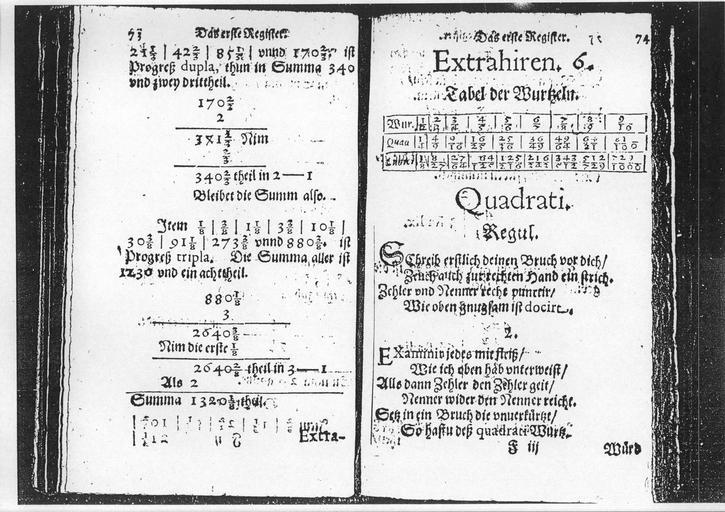 53 Das erste Register.
21⅓ | 42⅔ | 85⅓ | vnnd 170⅔ ist
Progreß dupla, thun in Summa 340
vnd zwey drittheil.
170⅔
2
341⅓ Nim
⅔
340⅔ theil in 2—1
Bleibet die Summ also.
Item ⅛ | ⅜ | 1⅛ | 3⅜ | 10⅛ |
30⅜ | 91⅛ | 273⅜ vnnd 820⅛. ist
Progreß tripla. Die Summa aller ist
1230 vnd ein achtetheil.
3
Nim die erste ⅛
theil in 3—1
Als 2
Summa theil.
Extra-
Das erste Register. 74
Extrahiren. 6.
Tabel der Wurtzeln.
Wur. | 1/2 | 2/3 | 3/4 | 4/5 | 5/6 | 6/7 | 7/8 | 8/9 | 9/10
Quad | 1/4 | 4/9 | 9/16 | 16/25 | 25/36 | 36/49 | 49/64 | 64/81 | 81/100
Cubi | 1/8 | 8/27 | 27/64 | 64/125 | 125/216 | 216/343 | 343/512 | 512/729 | 729/1000
Quadrati.
Regul.
SChreib erstlich deinen Bruch vor dich/
Zeuch auch zur rechten Hand ein strich.
Zehler vnd Nenner recht punctir/
Wie oben gnugsam ist docirt.
2.
EXaminir jedes mit fleiß/
Wie ich oben hab vnterweist/
Als dann Zehler den Zehler geit/
Nenner wider den Nenner reicht.
Setz in ein Bruch die vnuerkürtzt/
So hastu deß quadrati Wurtz.
F iij Würd